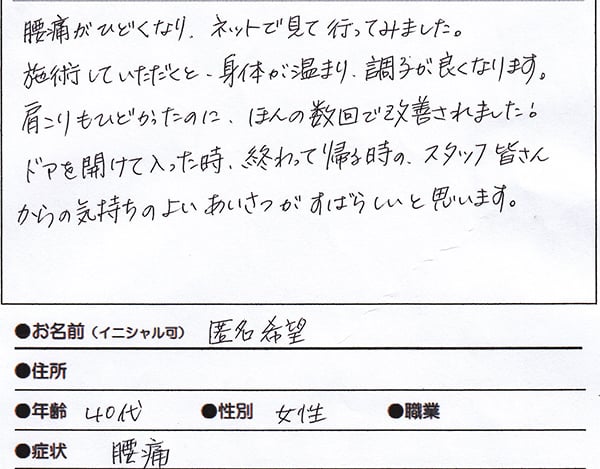 腰痛がひどくなり、ネットで見て行ってみました。
施術していただくと、身体が温まり、調子が良くなります。
肩こりもひどかったのに、ほんの数回で改善されました!
ドアを開けて入った時、終わって帰る時の、スタッフ皆さん
からの気持ちのよいあいさつがすばらしいと思います。
●お名前(イニシャル可) 匿名希望
●住所
●年齢 40代 ●性別 女性 ●職業
●症状 腰痛